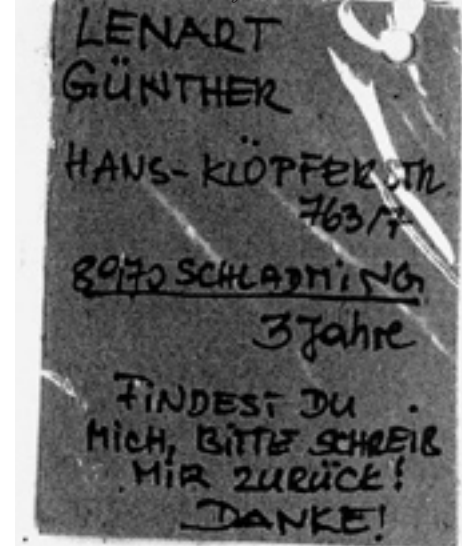 LENART
GÜNTHER
HANS-KLÖPFERSTR.
763/7
8970 SCHLADMING
3 Jahre
FINDEST DU
MICH, BITTE SCHREIB
MIR ZURÜCK!
DANKE!